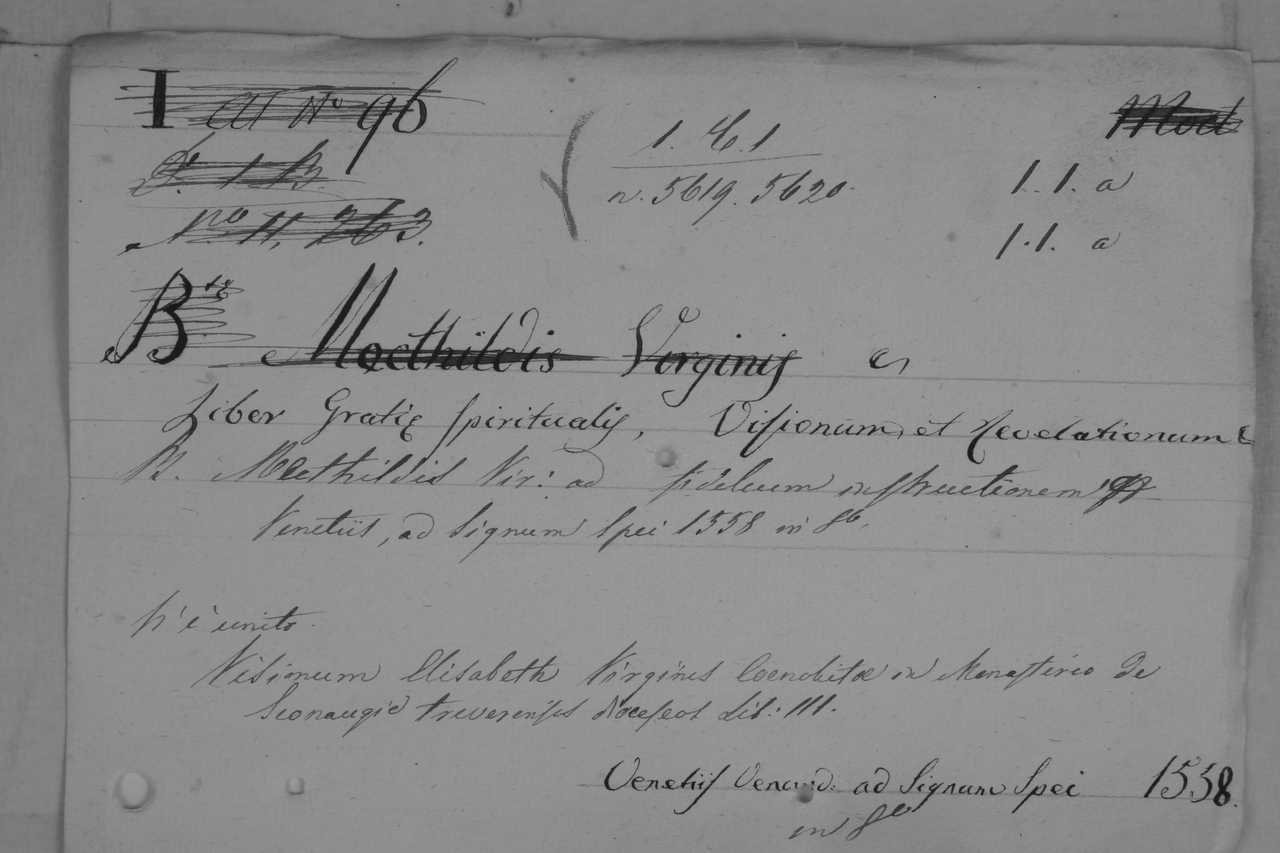 I cll No 96 Moct
1. 6. 1
n. 5619. 5620.
1. 1. a
1. 1. a
No 11, 263.
Bte Mecthildis Virginis
Liber Gratię spiritualis, Visionum, et Revelationum
B. Mecthildis Vir: ad fidelium instructionem
Venetiis, ad Signum Spei 1558 in 8o.
V'è unito
Visionum Elisabeth Virginis Coenobitæ in Monasterio de
Sconaugie Treverensis dioceseos lib: III.
Venetiis Venund. ad Signum Spei 1558.
in 8o